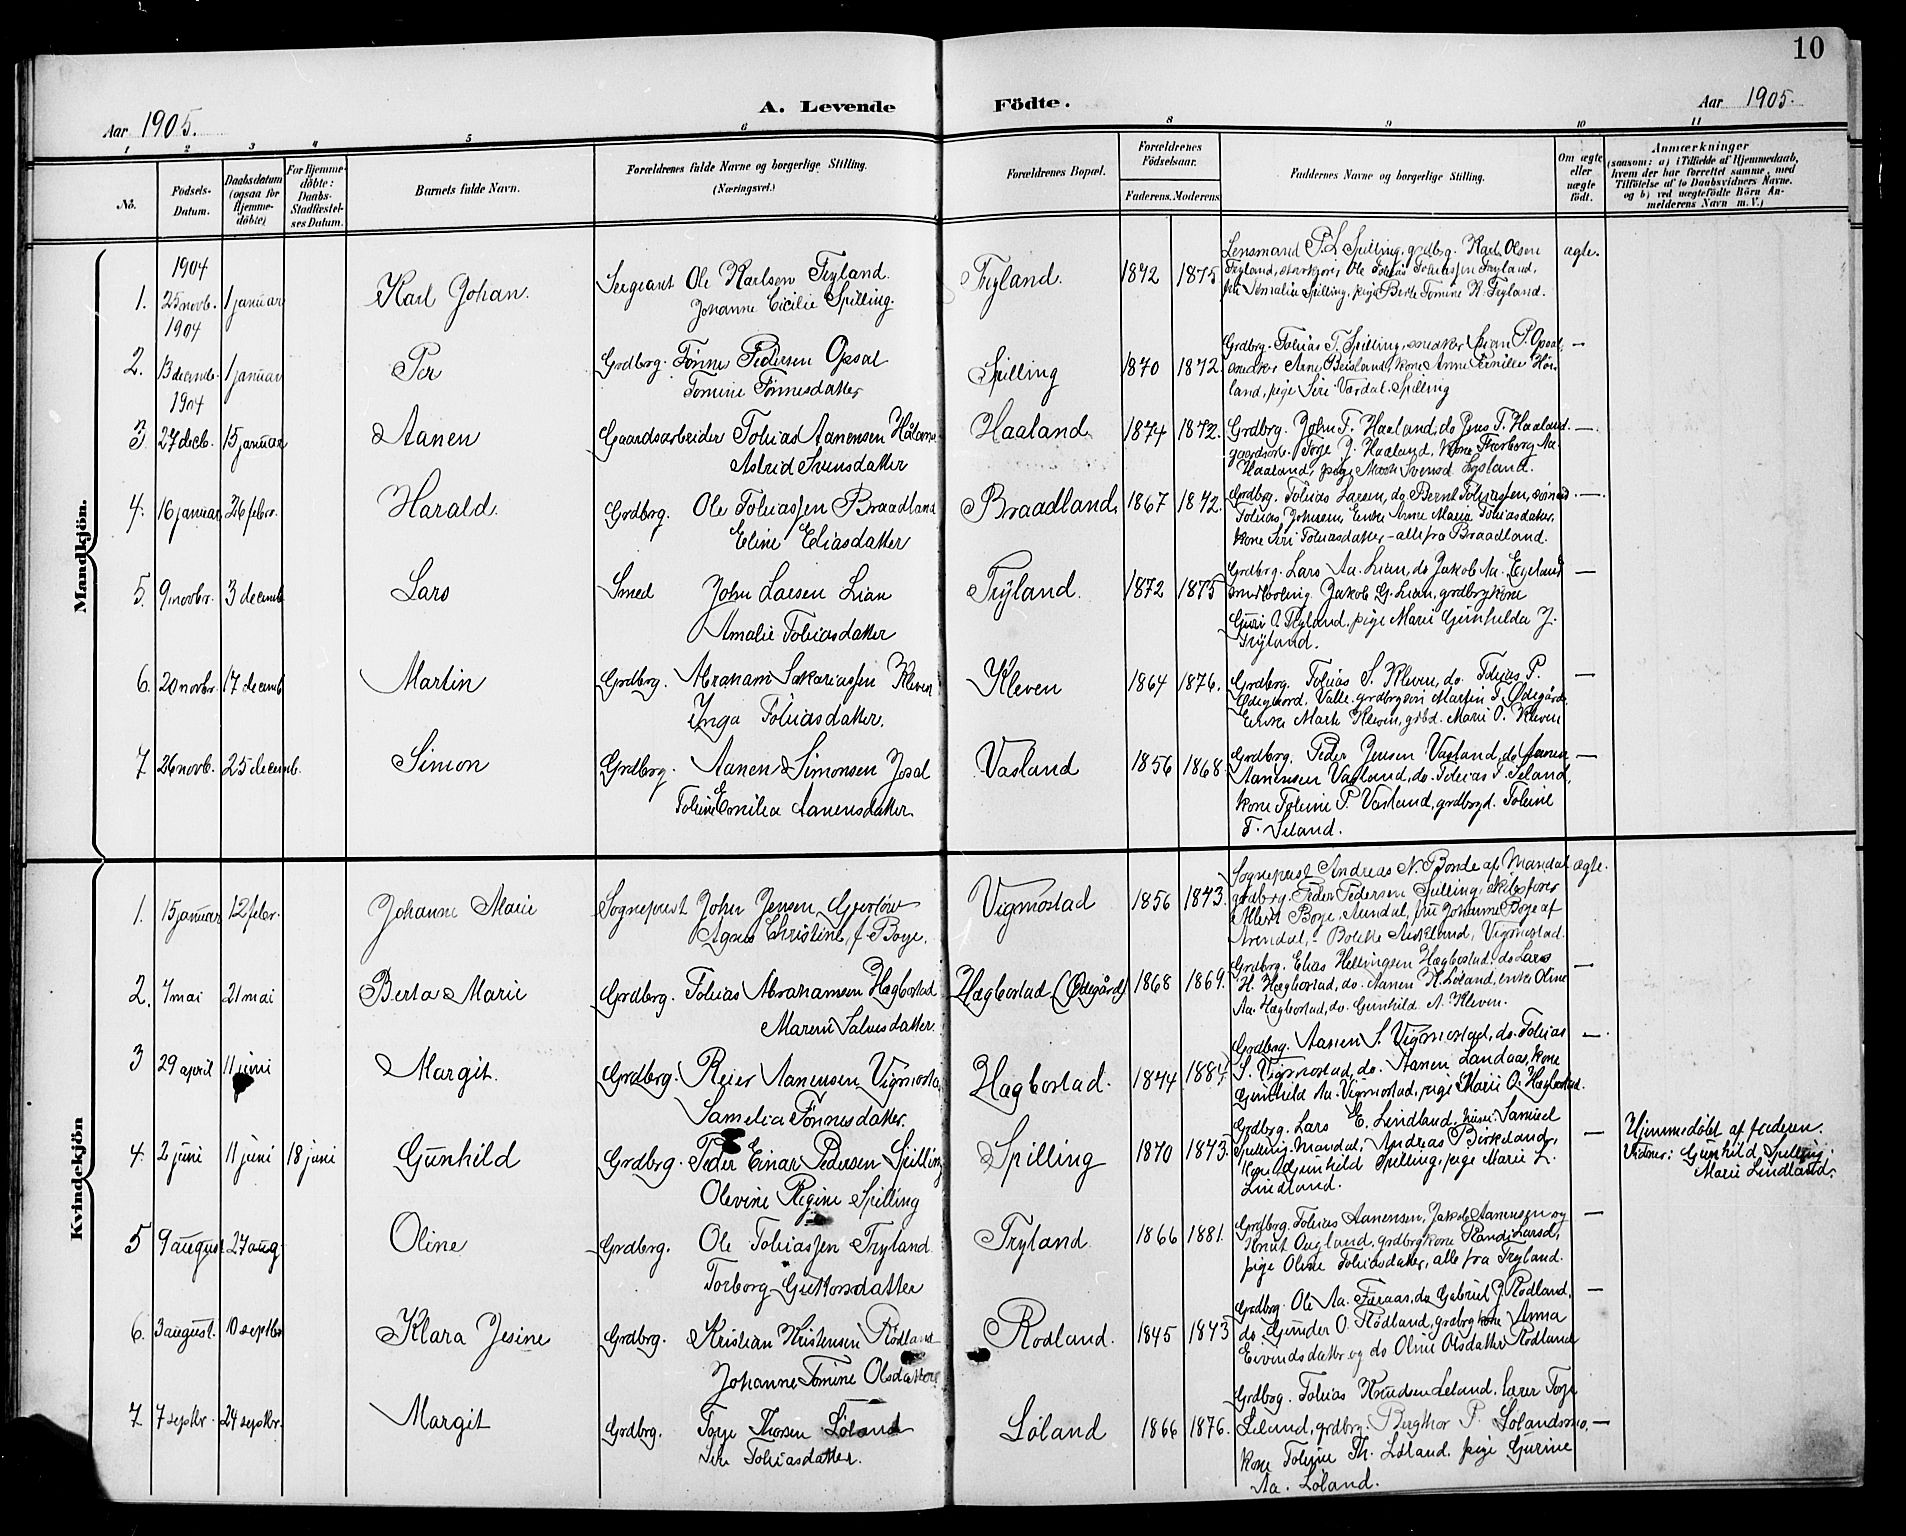 10
A. Levende Födte.
Aar 1905.
Aar 1905.
1 2 3 4 5 6 8 9 10 11
No.
Fødsels-
Datum.
Daabsdatum
(ogsaa for
Hjemme-
døbte)
For Hjemme-
døbte:
Daabs-
Stadfæstel-
ses Datum.
Barnets fulde Navn.
Forældrenes fulde Navne og borgerlige Stilling.
(Næringsvei.)
Forældrenes Bopæl.
Forældrenes
Fødselsaar.
Faderens. Moderens.
Faddernes Navne og borgerlige Stilling.
Om ægte
eller
uægte
født.
Anmærkninger
(saasom: a) i Tilfælde af Hjemmedaab,
hvem der har forrettet samme, med
Tilføielse af to Daabsvidners Navne.
og b) ved uægtefødte Børn An-
melderens Navn m. V.)
Mandkjön.
1904
1. 25 novb. 1 januar Karl Johan. Sergeant Ole Karlsen Tryland. Tryland. 1872 1875 ægte.
Johanne Cicilie Spilling.
Lensmand P. L. Spilling, grdbrg. Karl Olsen
Tryland, Ole Tobias Tobiassen Tryland,
fru Spilling, pige Berte Tomine K. Tryland.
1904
2. 13 decemb. 1 januar Per Grdbrg. Tønnes Pedersen Opsal Spilling 1870 1872. —
Tomine Tønnesdatter
Grdbrg. Tobias T. Spilling, snedker P. Opsal,
snedker Arne Beisland, kone Anne
land, pige Siri Vardal Spilling
1904
3. 27 decb. 15 januar Aanen Gaardsarbeider Tobias Aanensen Haaland 1874 1872. —
Astrid Svensdatter
Grdbrg. John T. Haaland, do Jens T. Haaland.
gaardsarb. Torje J. Haaland, kone Thorborg Aa.
Haaland, pige Svensd. Lysland.
4. 16 januar 26 febr. Harald. Grdbrg. Ole Tobiassen Braadland Braadland. 1867 1872. —
Eline Eliasdatter
Grdbrg. Tobias Larsen, do Bernt Tobiassen, sømand
Tobias Johnsen, Enke Anne Maria Tobiasdatter,
kone Siri Tobiasdatter – alle fra Braadland.
5. 9 novbr. 3 decemb Lars Smed John Larsen Lian Tryland. 1872 1875 —
Amalie Tobiasdatter
Grdbrg. Lars Aa. Lian, do Jakob Aa. Egeland
Jakob G. Lian, grdbrgkone
Guri O. Tryland, pige Marie Gunhilda J.
Tryland.
6. 20 novbr. 17 decemb Martin Grdbrg. Abraham Sakariassen Kleven Kleven 1864 1876. —
Inga Tobiasdatter.
Grdbrg. Tobias S. Kleven, do. Tobias P.
Ødegaard, Valle. grdbrgsøn Martin T. Ødegård,
Enke Marte Kleven, grbd. Marie O. Kleven
7. 26 novb. 25 decemb. Simon Grdbrg. Aanen Simonsen Josdal Vasland 1856 1868 —
Tobine Emilie Aanensdatter
Grdbrg. Peder Jensen Vasland, do Aanen
Aanensen Vasland, do. Tobias T. Seland,
kone Tobine P. Vasland, grdbrgd. Tobine
T. Seland.
Kvindekjön
1. 15 januar 12 febr. Johanne Marie Sogneprest John Jensen Gjerløw Vigmostad 1856 1873. ægte.
Agnes Christine, f. Boye.
Sogneprest Andreas N. Bonde af Mandal
grdbrg. Peder Pedersen Spilling, skibsfører
Boye, Arendal, fru Johanne Boye af
Arendal, Bolette, Vigmostad.
2. 7 mai 21 mai Berta Marie Grdbrg. Tobias Abrahamsen Hægbostad Hægbostad (Ødegård) 1868 1869. —
Maren Salvesdatter.
Grdbrg. Elias Hellingsen Hægbostad, do Lars
H. Hægbostad, do. Aanen K. Leland, enke Oline
Aa. Hægbostad, do. Gunhild A. Kleven.
3 29 april 11 juni Margit. Grdbrg. Reier Aanensen Vigmostad Hægbostad. 1874 1884 —
Samelia Tønnesdatter.
Grdbrg. Aanen S. Vigmostad, do. Tobias
S. Vigmostad, do. Aanen Landaas, kone
Gunhild Aa. Vigmostad, pige Marie O. Hægbostad.
4. 2 juni 11 juni 18 juni Gunhild Grdbrg. Peder Einar Pedersen Spilling Spilling 1870 1873. —
Olevine Regine Spilling
Grdbrg. Lars E. Lindland, Samuel
Spilling, Mandal, Andreas Birkeland,
kone Gunhild Spilling, pige Marie L.
Lindland.
Hjemmedøbt af faderen.
Vidner: Gunhild Spilling.
Marie Lindland.
5 9 august 27 aug. Oline Grdbrg. Ole Tobiassen Tryland Tryland 1866 1881. —
Torborg Guttorsdatter
Grdbrg. Tobias Aanensen, Jakob Aanensen og
Knut Augland, grdbrgkone Randi Larsd.,
pige Oline Tobiasdatter, alle fra Tryland.
6. 3 august. 10 septbr Klara Jesine Grdbrg. Kristian Kristensen Rødland Rødland. 1845 1873 —
Johanne Tomine Olsdatter
Grdbrg. Ole Aa. Faraas, do Gabriel J. Rødland,
do. Gunder O. Rødland, grdbrgkone Anna
Eivindsdatter og do Oline Olsdatter Rødland
7. 7 septbr. 24 septbr. Margit Grdbrg. Torje Thorsen Løland Løland 1866 1876. —
Siri Tobiasdatter.
Grdbrg. Tobias Knudsen Leland, lærer Torje
Leland, grdbrg. Bergthor P. Lølandsmo,
kone Tobine Th. Løland, pige Gurine
Aa. Løland.